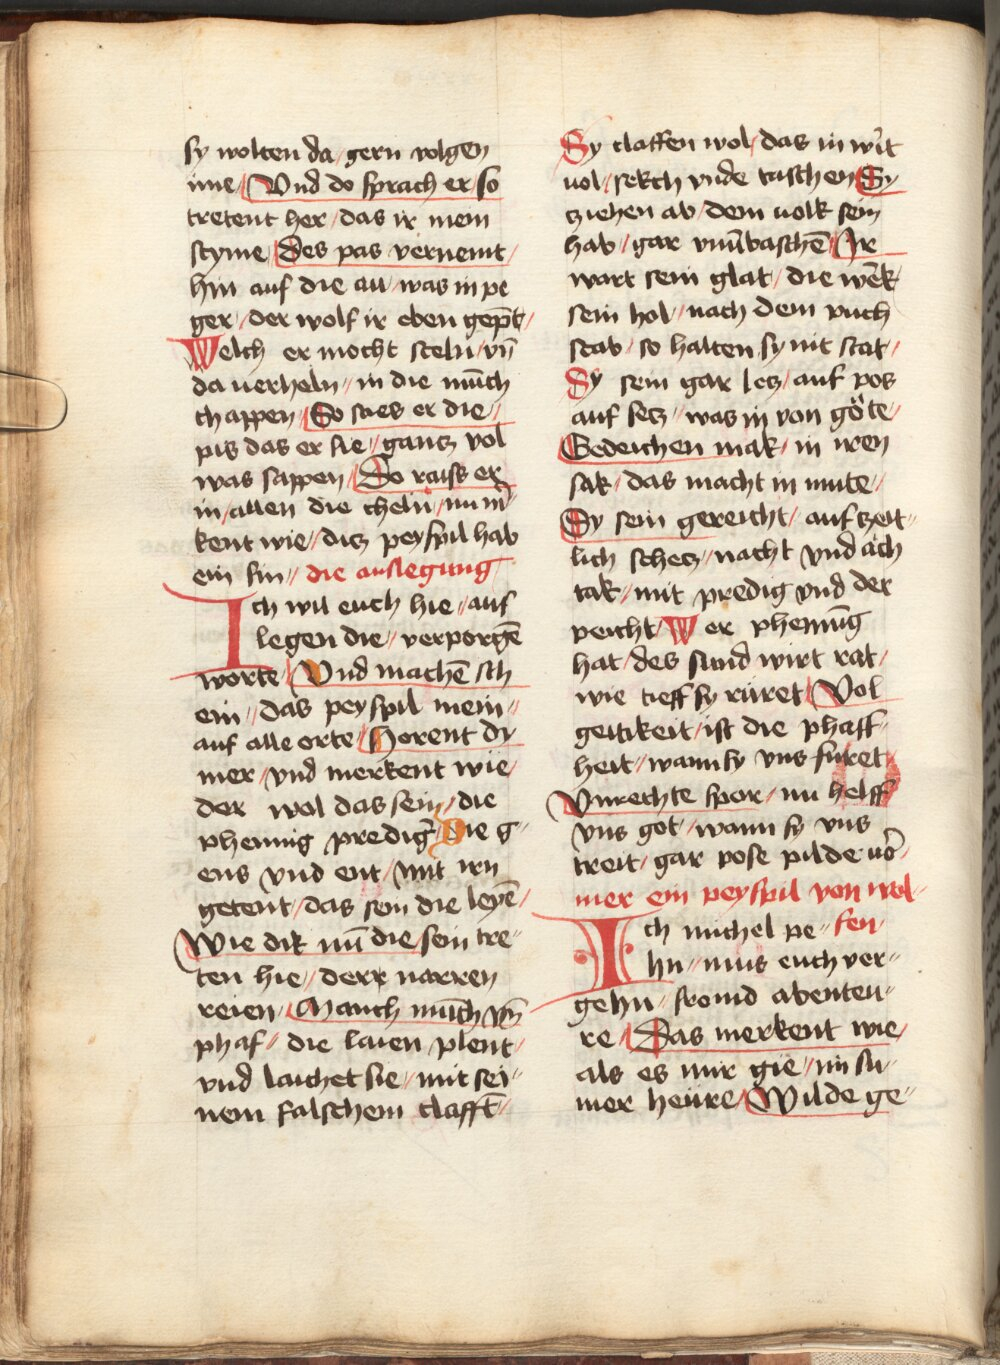 sy wolten da / gern volgen
ime / Vnd do sprach er / so
tretent her / das ir mein
styme / Des pas vernemt /
hin auf die au / was in pe
ger / der wolf ir eben gep̄t /
Welch er mocht steln / vn̄
da uerheln // in die mu̅ch
chappen / So sties er die /
pis das er sie / gantz vol
was sappen / Do raiss er
in / allen die cheln / nu m̄
kent wie / ditz peyspil hab
ein sin // die auslegung
Ich wil euch hie // auf
legen die // verporgē
worte / Vnd machē sch
ein // das peyspil mein //
auf alle orte / Horent dy
mer / vnd merkent wie /
der wol das sein / die
phennig prediger̄ / Die g
ens vnd ent / mit irn
getent / das sein die leyē /
Wie dik nu̅ die / sein tre //
ten hie // derr narren
reien / Manch mu̅ch vn̄
phaf // die laien plent /
vnd laichet sie // mit sei //
nem falschem clafft̄ //
Sy claffen wol / das in wir̄t
uol / sekch vnde taschen / Sy
cziehen ab / dem uolk sein
hab / gar vnu̅baschē / Ir
wart sein glat / die wēk
sein hol / nach dem puch
stab / so halten sy nit stat /
Sy sein gar letz / auf pos
auf setz // was in von gőte /
Gedeichen mak / in iren
sak / das macht in mute //
Sy sein gereicht / auf zeit //
lich schetz / nacht vnd ach
tak / mit predig vnd der
peicht / Wer phennig
hat / des sund wirt rat /
wie tieff sy rüret / Vol
geitikeit / ist die phaff
heit / wann sy vns furet /
Vnrechte spor / nu helff
vns got / wann sy vns
treit / gar pose pilde uor̄ /
mer ein peyspil von wol //
Ich michel pe // fen /
hn // mus euch ver //
gehn // fromd abenteu //
re / Das merkent wie /
als es mir gie / im su //
mer heüre / Wilde ge //